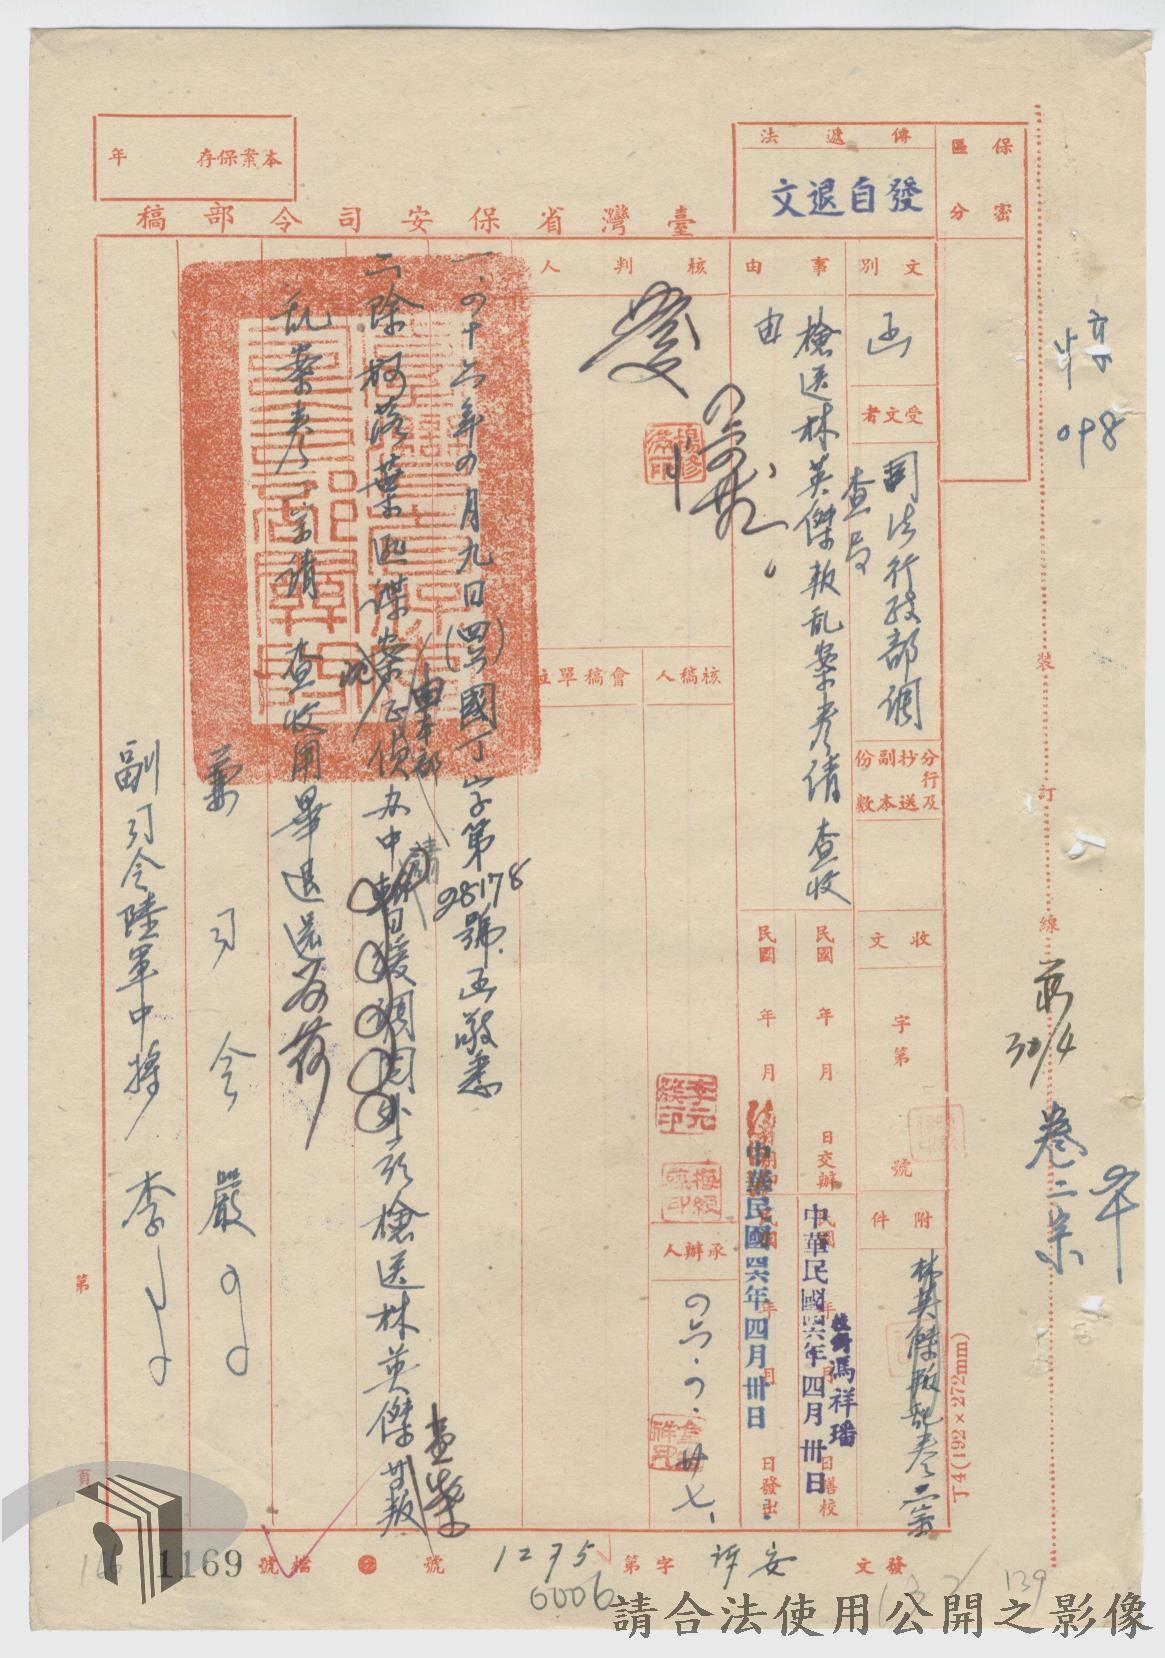 保密
區分
傳遞法
發自退文
本案保存 年
臺灣省保安司令部稿
文別
函
受文者
司法行政部調
查局
分行及
抄送
副本
份數
收文
字第 號
附件
林英傑叛乱卷二宗
事由
檢送林英傑叛乱案卷請 查收
由
民國 年 月 日交辦
民國 年 月
日繕校
日發出
中華民國四六年四月卅日
校對 馮祥璠
中華民國四六年四月卅日
核判人
核稿人
會稿單位
承辦人
李元簇印
四六.四.卅七.
一、四十六年四月九日(四六)國丁字第28178號函敬悉
二、除柯落葉匪諜案正由本部偵办中請暫緩調閱外茲檢送林英傑等叛
乱案卷二宗請 查收用畢退還為荷
兼司令 嚴
副司令陸軍中將 李
裝
訂
線
098
卷二宗
30/4
第
頁
T4(192×272mm)
發文
安
字第
1275
號
檔號
1169
0006
139
請合法使用公開之影像